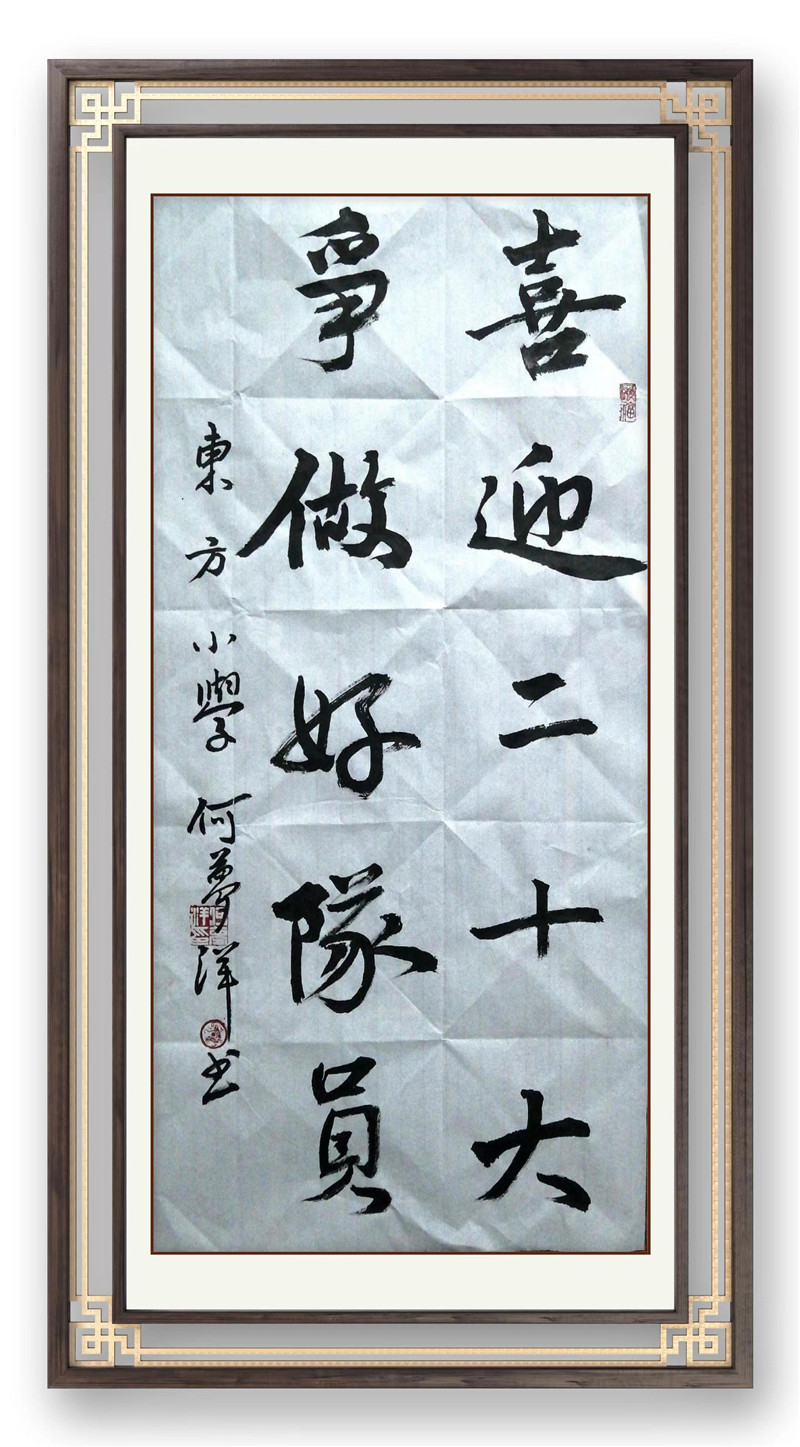 喜迎二十大
爭做好隊員
東方小學何夢洋书